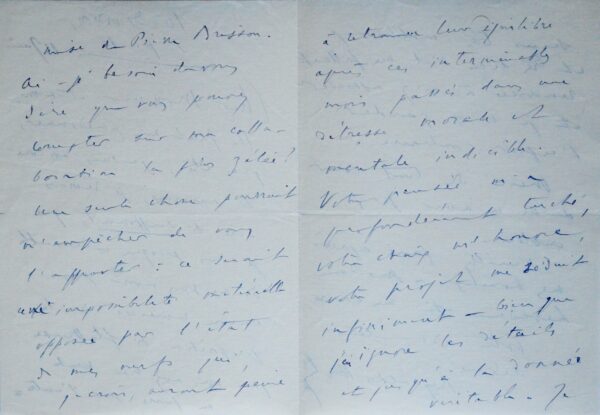 mise de Pierre Brisson.
Ai-j' besoin de vous
dire que vous pouvez
compter sur ma colla-
boration la plus zélée !
Une seule chose pourrait
m'empêcher de vous
l'apporter : ce serait
une impossibilité matérielle
opposée par l'état
de mes nerfs qui,
je crois, auront peine
à retrouver leur équilibre
après ces interminables
mois passés dans une
détresse morale et
mentale indicible.
Votre pensée m'a
profondément touché,
votre choix m'honore,
votre projet me séduit
infiniment – bien que
j'en ignore les détails
et jusqu'à la donnée
véritable. Je